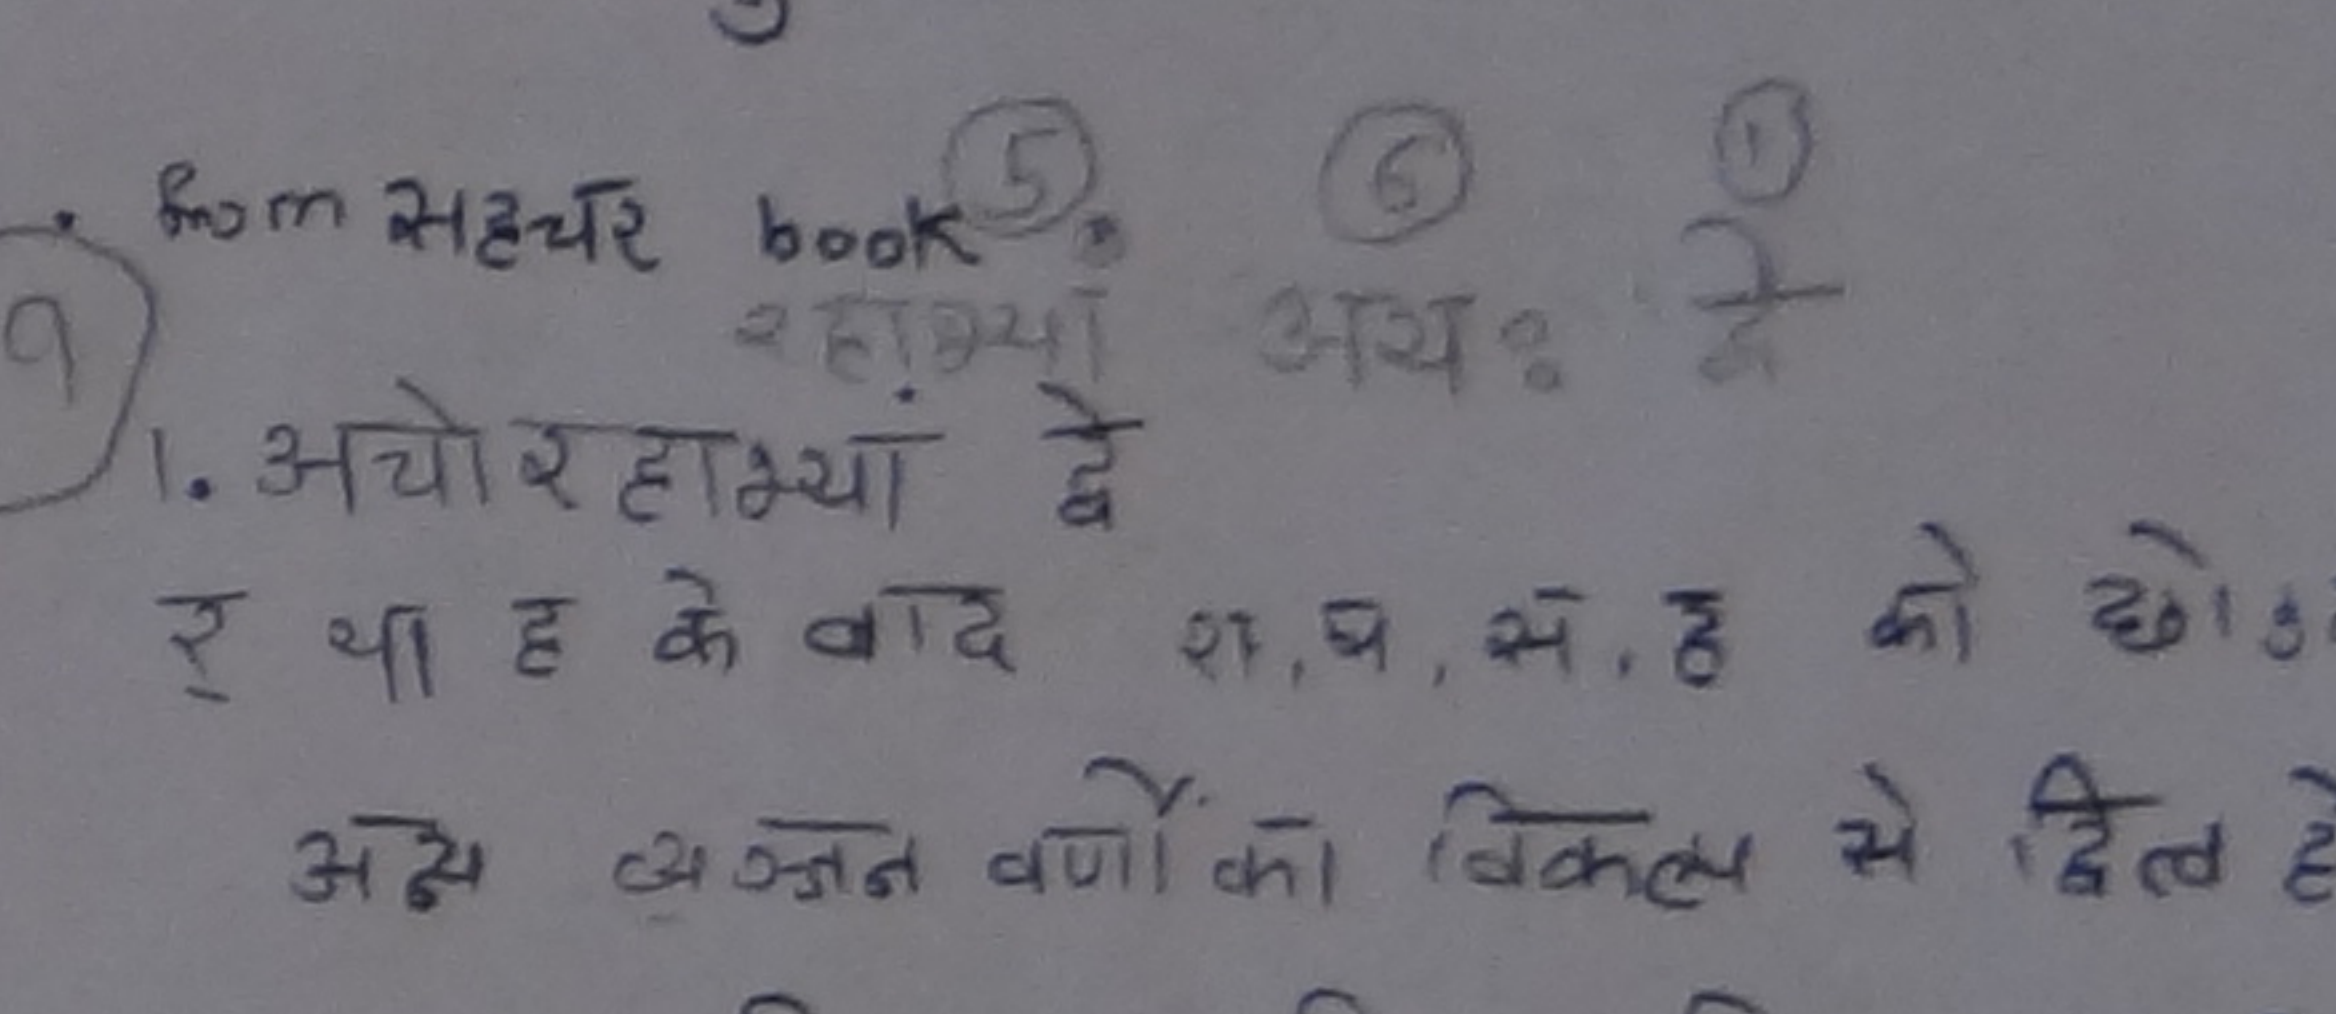 from सहचर book
5 6 1
रहाभ्यां अयः द्वे
१
1. अचोरहाभ्यां द्वे
र् या ह के बाद श, ष, स, ह को
अन्य व्यञ्जन वर्णों का विकल्प से द्वित्व